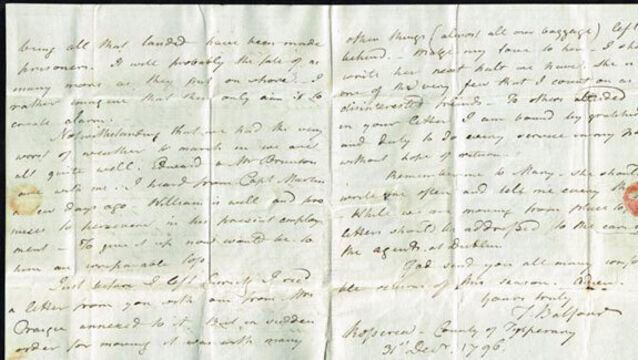 being all that landed have been made
prisoners. I will probably the fate of as
many more as they put on shore. I
rather imagine that their only aim is to
create alarm.
Notwithstanding that we had the very
worst of weather to march in we are
all quite well. Edward & Mr
are with me. I heard from Capt
a few days ago. William is well and pro
mises to persevere in his present employ
ment — To give it up now would be to
him an irreparable loss
Just before I left I recd
a letter from you with one from Mrs
Craigie annexed to it. But in sudden
order for moving it was with many
other things (almost all our baggage) left
behind — Make my love to her — I sh
write her next halt we have. She is
one of the very few that I count on as
disinterested friends. To others alluded
in your letter I am bound by gratitude
and duty to do every service in my
without hope of return.
Remember me to Mary — she should
write me often and tell me every th
— While we are moving from place to
letters should be addressed to the care of
the agents at Dublin
God send you all many comforta
ble returns of this season. Adieu.
Yours truly
T Balfour
Roscrea — County of Tipperary
31st Decr. 1796.